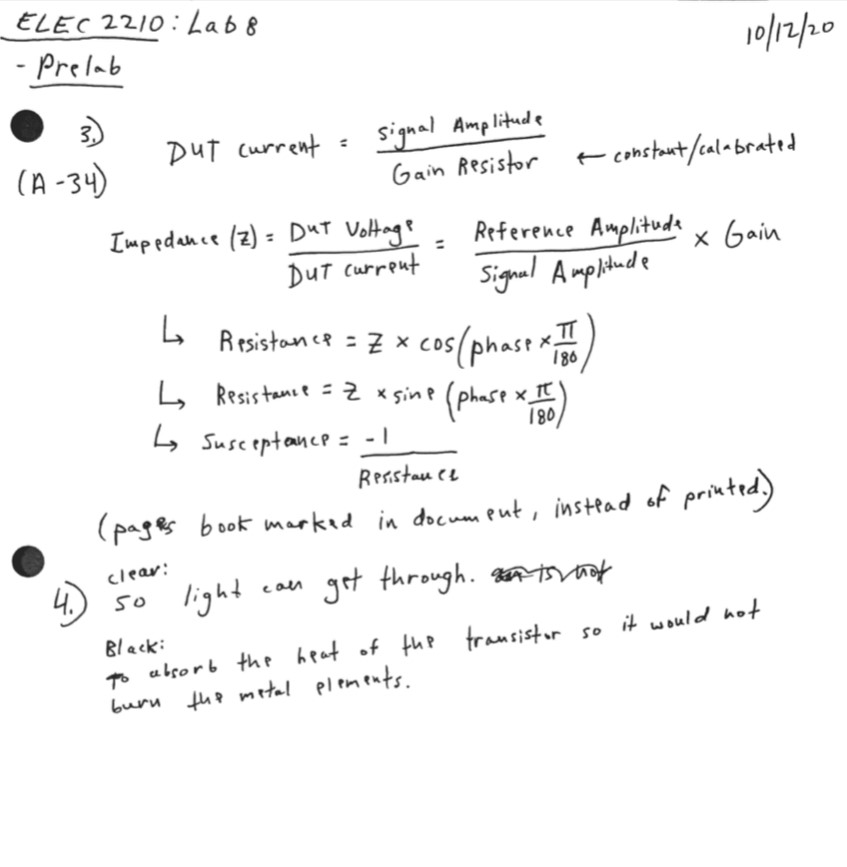 ELEC 2210: Lab 8
10/12/20
- Prelab
3.)
(A-34)
DUT current = Signal Amplitude / Gain Resistor ← constant/calabrated
Impedance (Z) = DUT Voltage / DUT current = Reference Amplitude / Signal Amplitude × Gain
↳ Resistance = Z × cos(phase × π/180)
↳ Resistance = Z × sine (phase × π/180)
↳ Susceptance = -1 / Resistance
(pages book marked in document, instead of printed.)
4.) clear:
so light can get through.
Black:
To absorb the heat of the transistor so it would not
burn the metal elements.